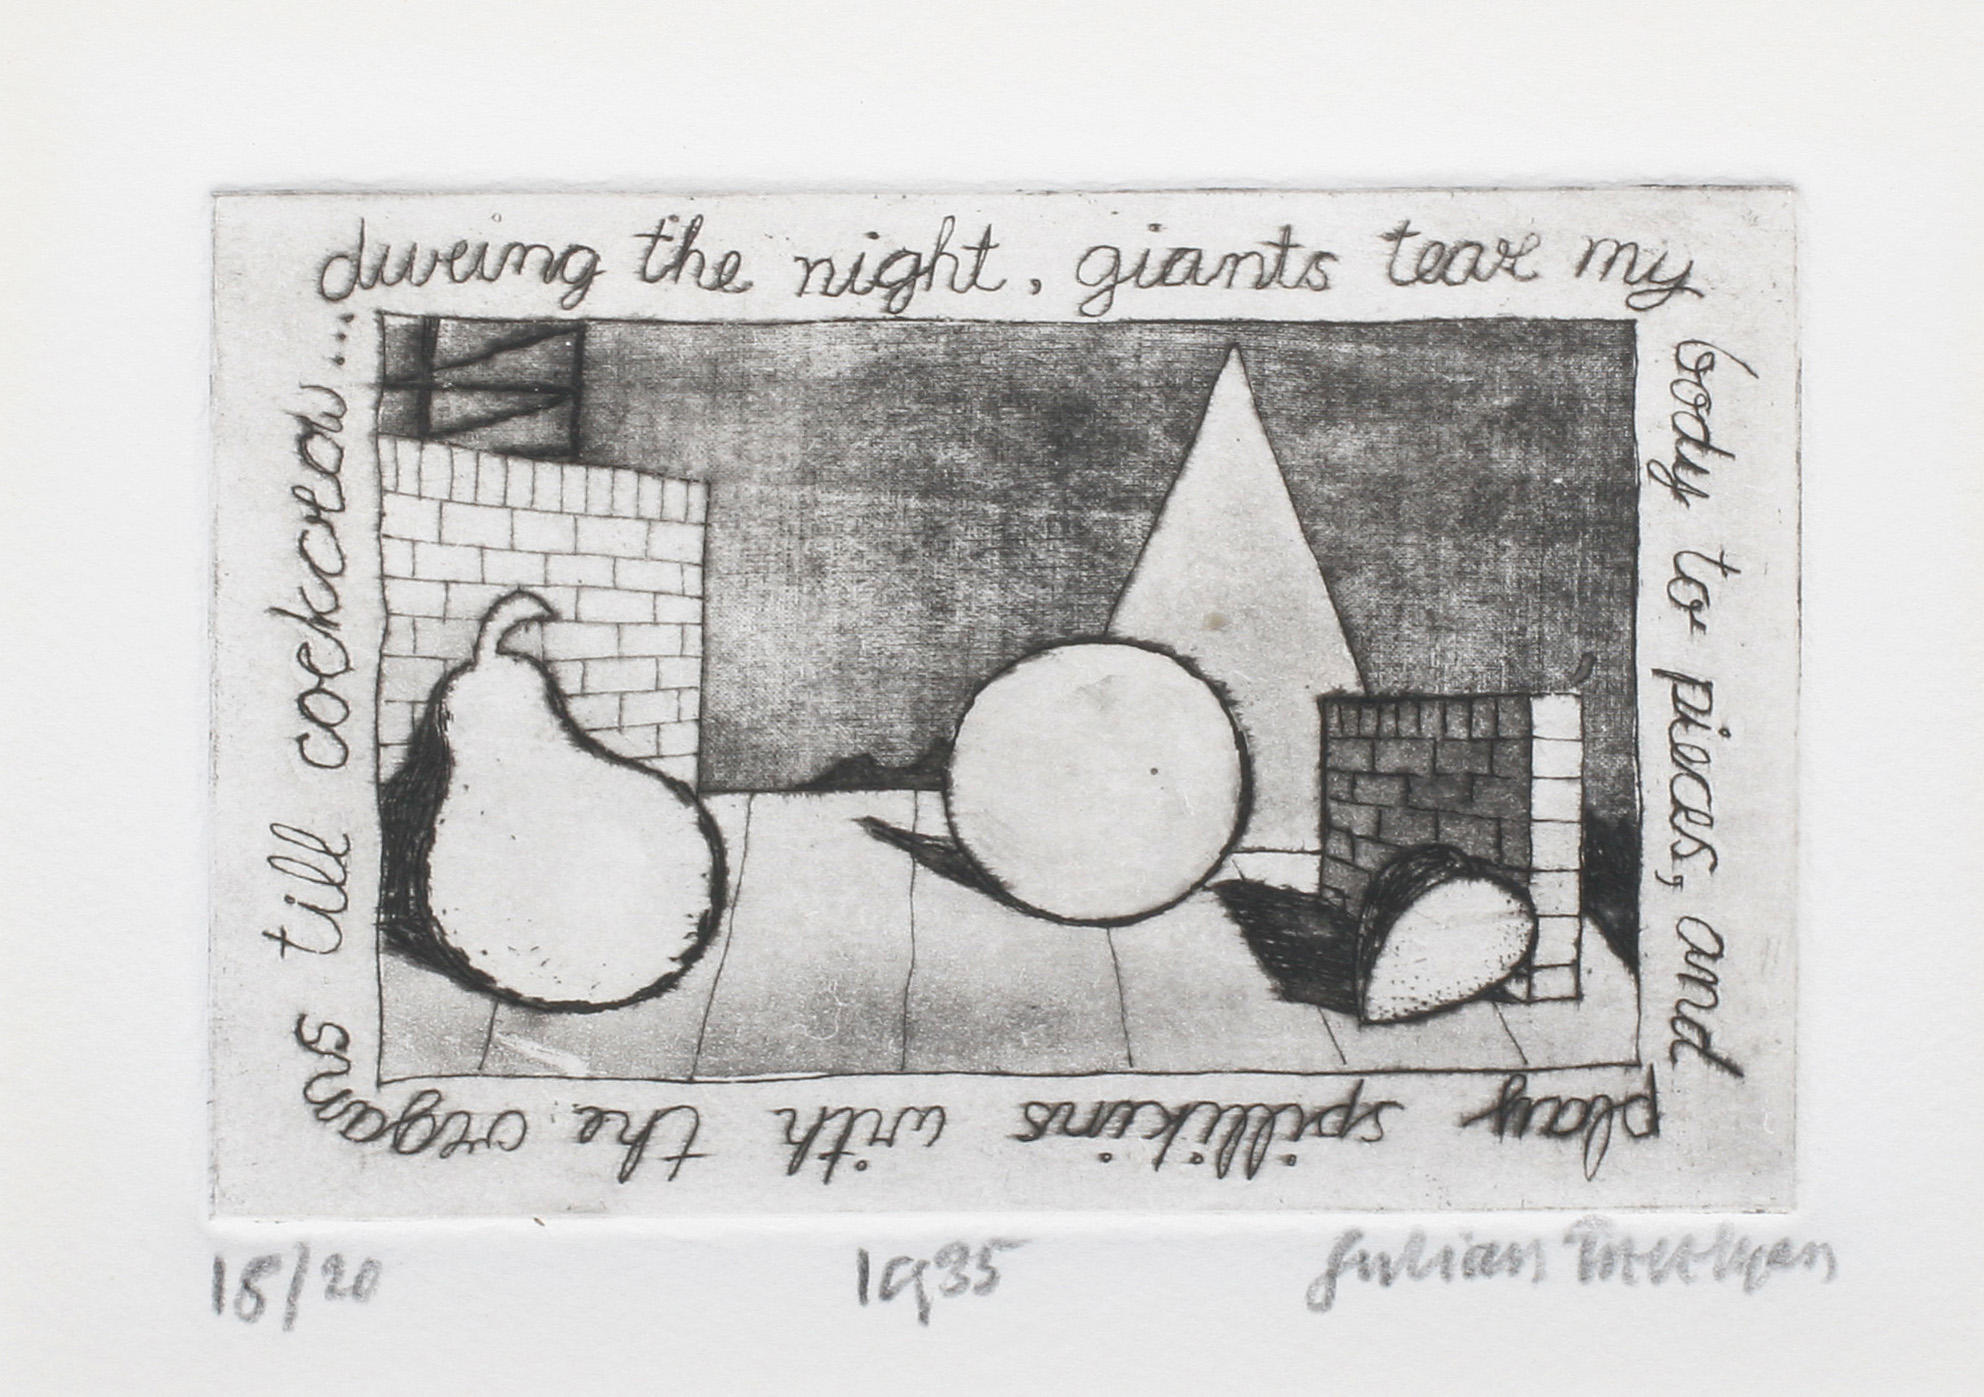 during the night, giants tear my
body to pieces, and
play spillikins with the organs
till cockcrow....
18/20
1935
Julian Trevelyan